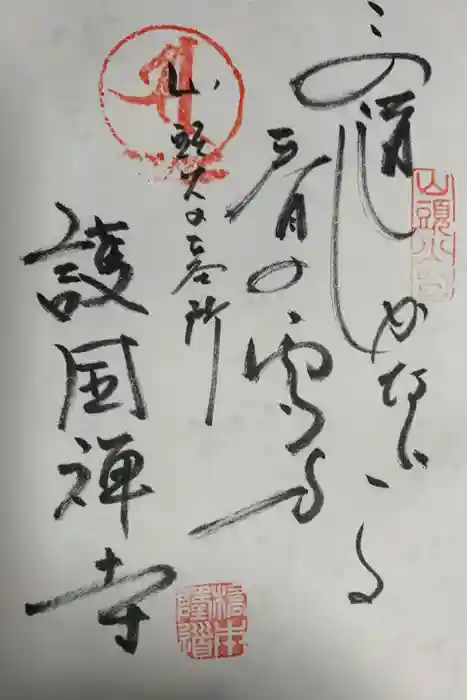 この道しかない
春の雪ふる
山頭火の墓所
護国禅寺
山頭火句